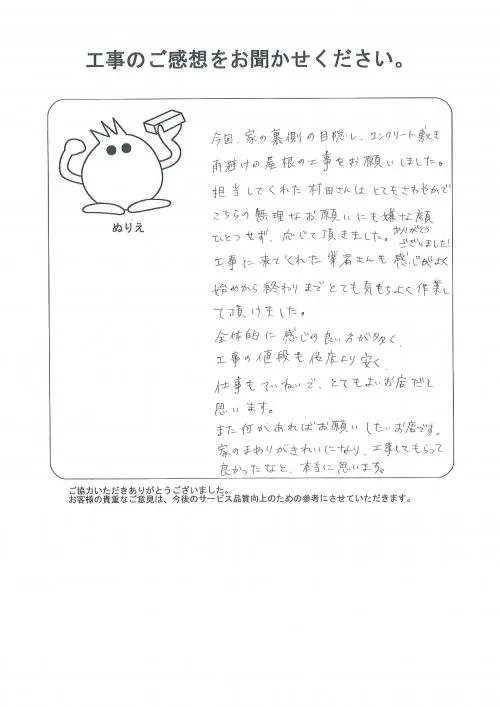 工事のご感想をお聞かせください。
ぬりえ
今回、家の裏側の目隠し、コンクリート敷き
雨避けの屋根の工事をお願いしました。
担当してくれた村田さんはとてもさわやかで
こちらの無理なお願いにも嫌な顔
ひとつせず、応じて頂きました。ありがとうございました!
工事に来てくれた業者さんも感じがよく
始めから終わりまでとても気もちよく作業し
て頂けました。
全体的に感じの良い方が多く、
工事の値段も他店より安く、
仕事もていねいで、とてもよいお店だと
思います。
また何かあればお願いしたいお店です。
家のまわりがきれいになり、工事してもらって
良かったなと、本当に思います。
ご協力いただきありがとうございました。
お客様の貴重なご意見は、今後のサービス品質向上のための参考にさせていただきます。